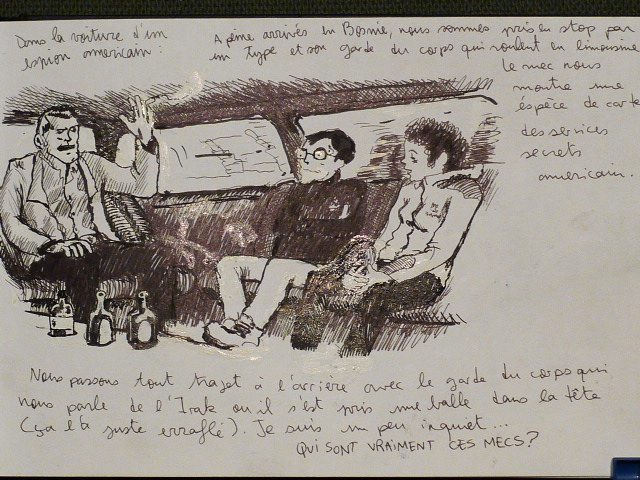 Dans la voiture d'un
espion americain :
A peine arrivés en Bosnie, nous sommes pris en stop par
un type et son garde du corps qui roulent en limousine
Le mec nous
montre une
espèce de carte
des services
secrets
americain.
Nous passons tout trajet à l'arrière avec le garde du corps qui
nous parle de l'Irak ou il s'est pris une balle dans la tête
(ça l'a juste erraflé). Je suis un peu inquiet...
QUI SONT VRAIMENT CES MECS?